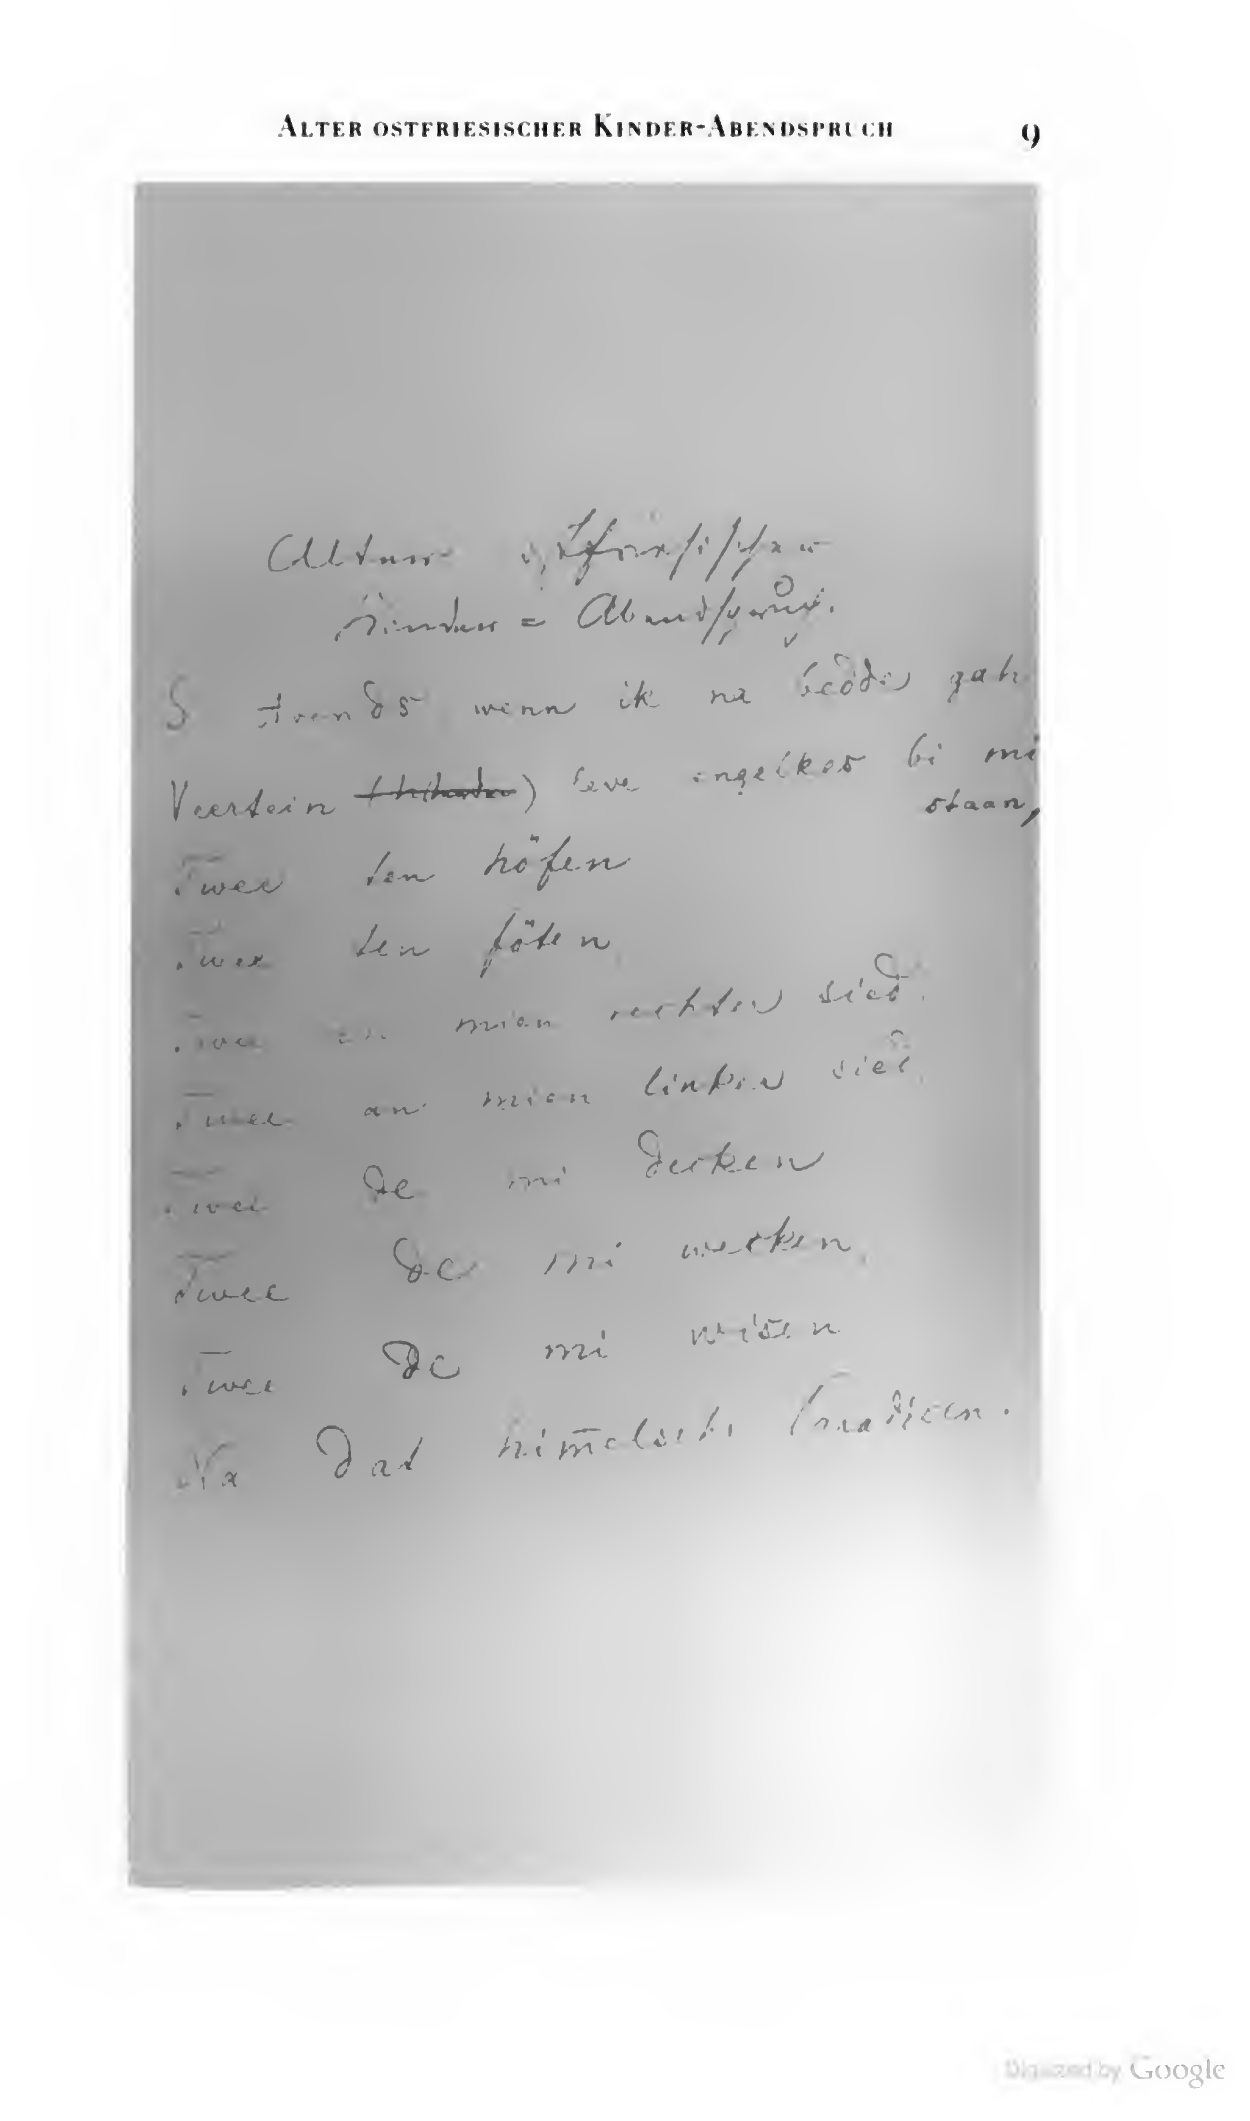 ALTER OSTFRIESISCHER KINDER-ABENDSPRUCH 9
Alter ostfriesischer
Kinder = Abendspruch.
S avends wenn ik na bedde gah
Veertein ) leve engelkes bi mi
staan,
Twee ten höfen
Twee ten föten
Twee an mien rechter sied.
Twee an mien linker sied,
Twee de mi decken
Twee de mi wecken,
Twee de mi wisen
Na dat himelsch Paradisen.
Digitized by Google